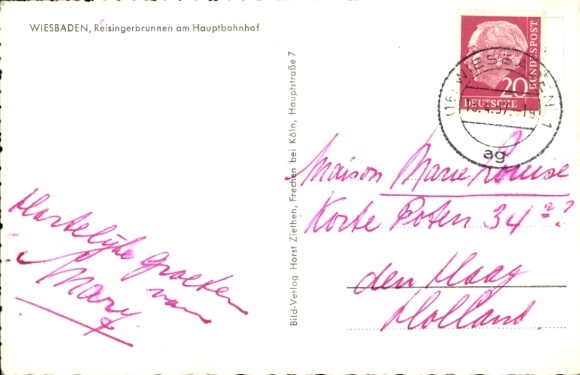 WIESBADEN, Reisingerbrunnen am Hauptbahnhof
Hartelijke groeten
van
Mary
Bild-Verlag Horst Ziethen, Frechen bei Köln, Hauptstraße 7
20
DEUTSCHE
BUNDESPOST
(16) WIESBADEN 1
ag
Maison Marie Louise
Korte Poten 34
den Haag
Holland.